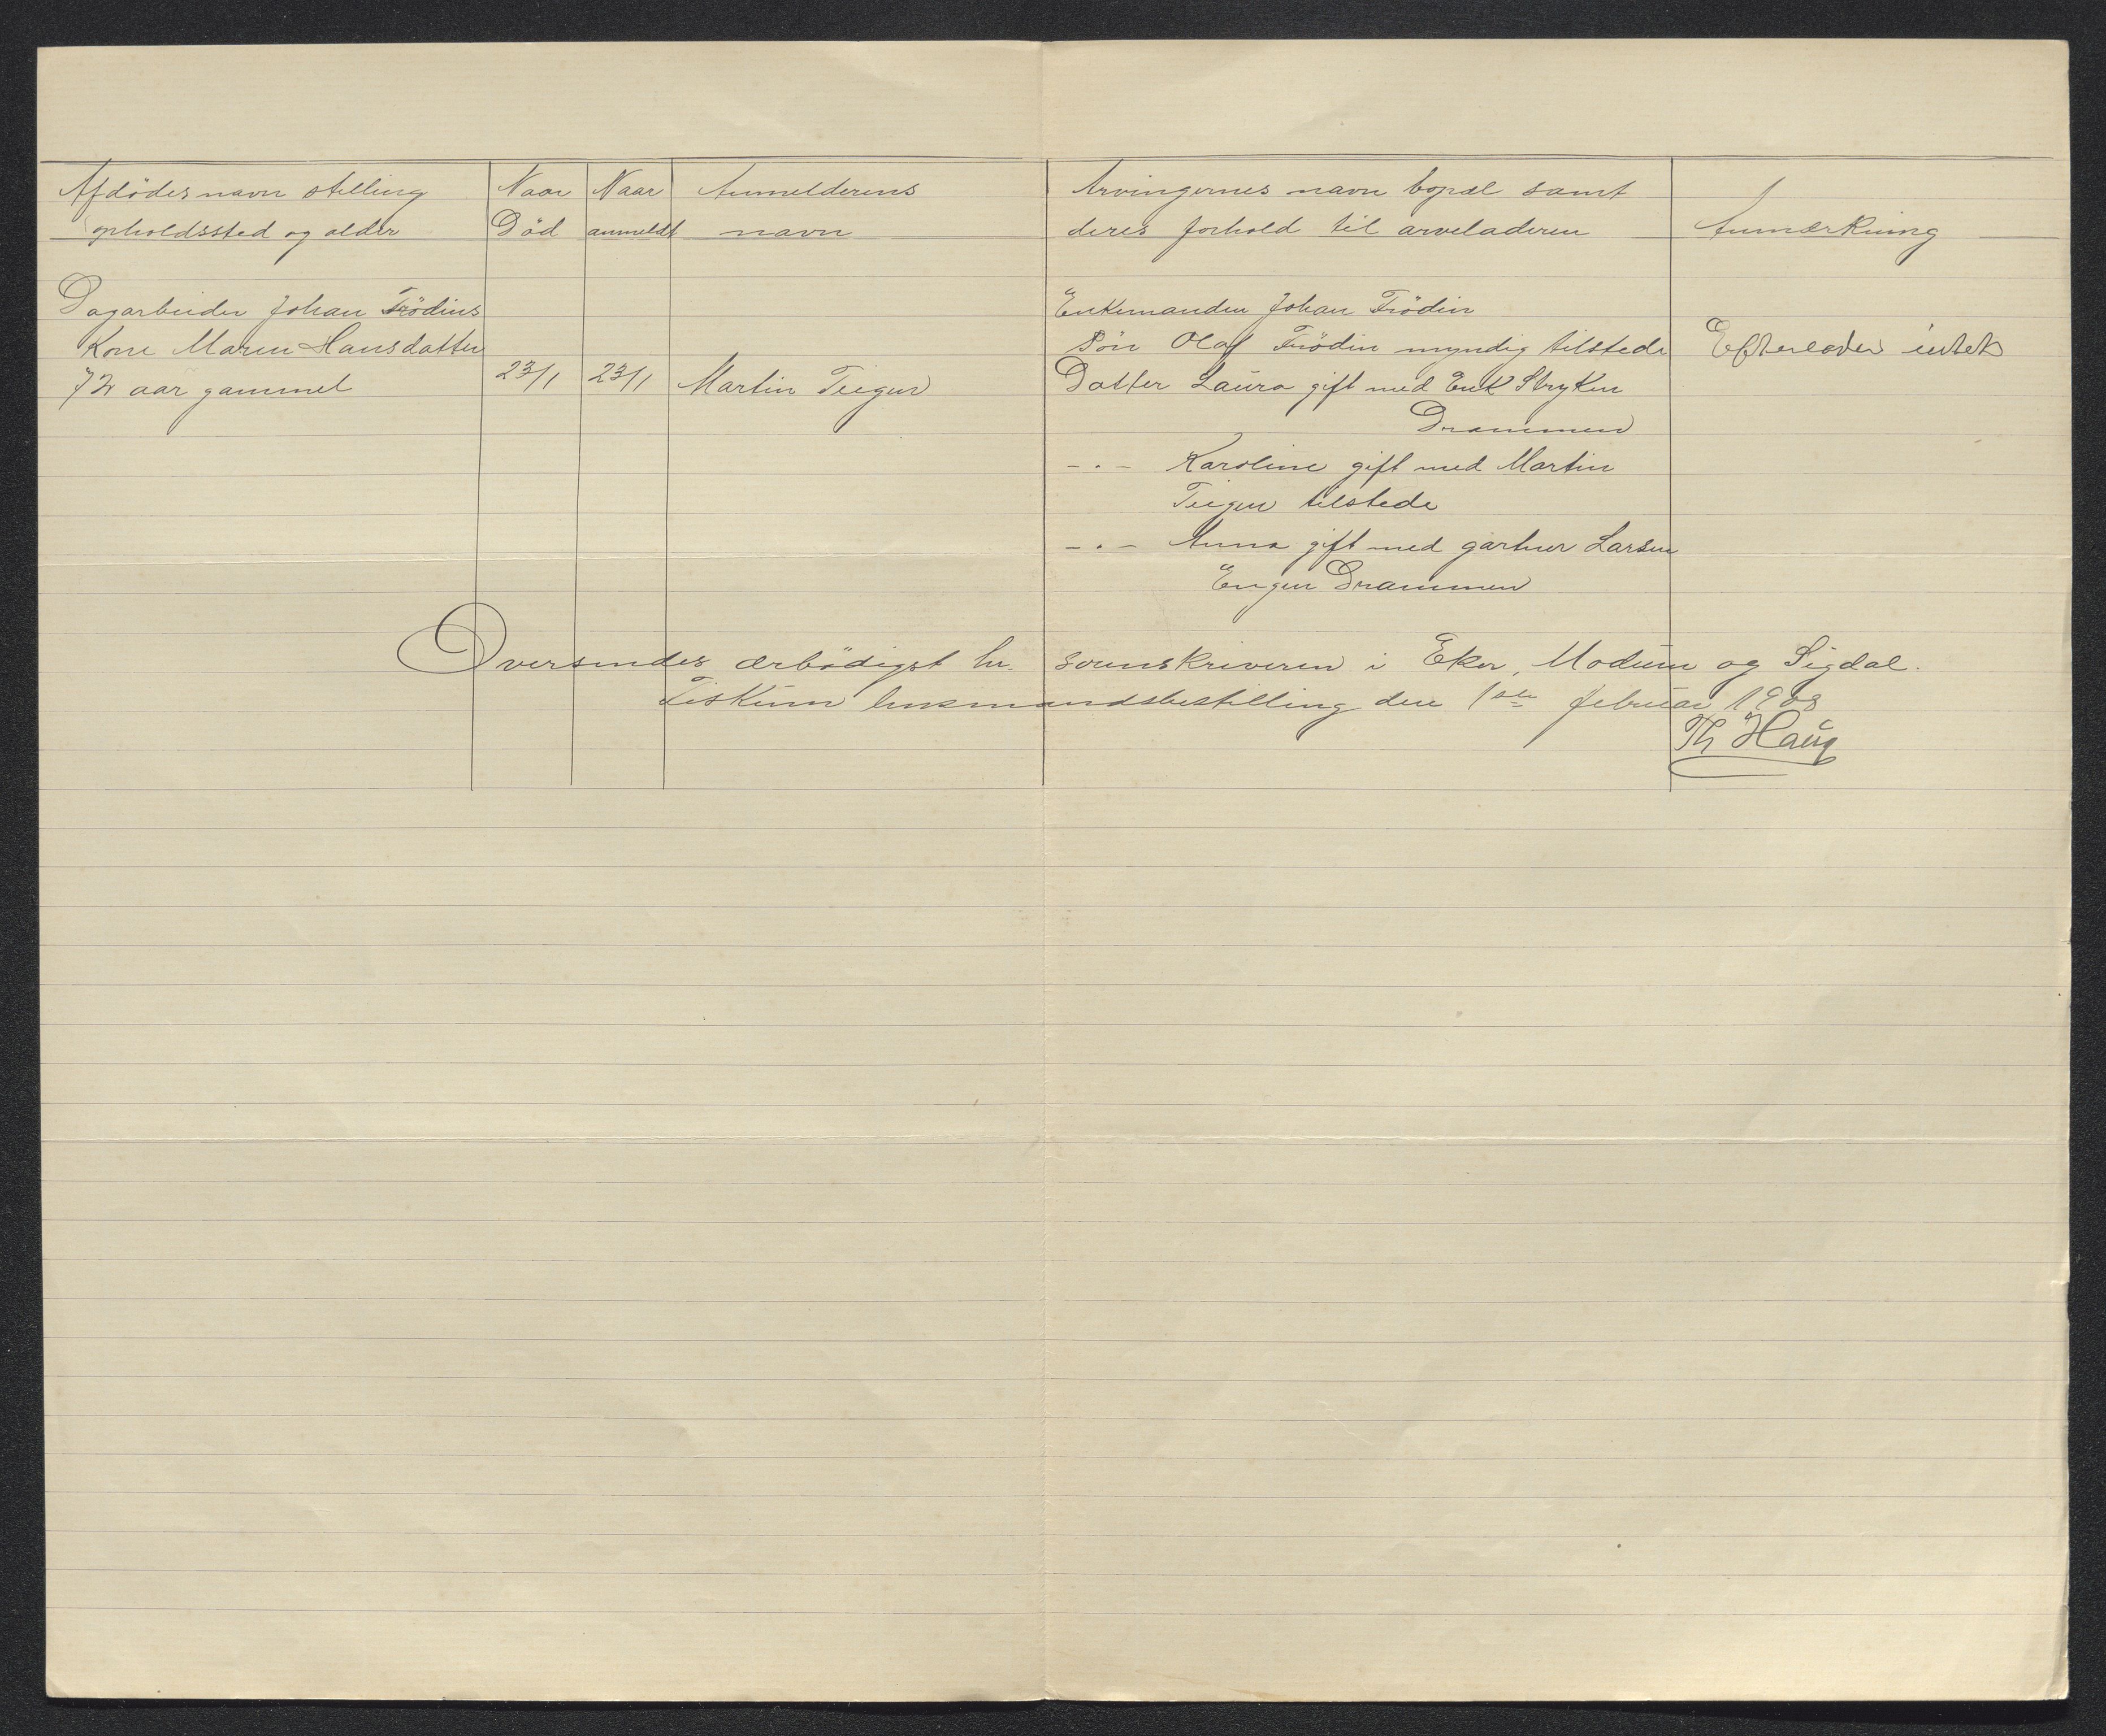 Afdödes navn stilling
opholdssted og alder
Naar
Död
Naar
anmeldt
Anmelderens
navn
Arvingernes navn bopæl samt
deres forhold til arveladeren
Anmærkning
Dagarbeider Johan Frödins
Kone Maren Hansdatter
72 aar gammel
23/1
23/1
Martin Teigen
Enkemanden Johan Frödin
Sön Olaf Frödin myndig tilstede
Datter Laura gift med Stryken
Drammen
-.- Karoline gift med Martin
Teigen tilstede
-.- Anna gift med gartner Larsen
Engen Drammen
Efterlader intet
Oversendes ærbödigst hr sorenskriveren i Eker, Modum og Sigdal.
Fiskum lensmandsbestilling den 1ste februar 1908
Th Haug